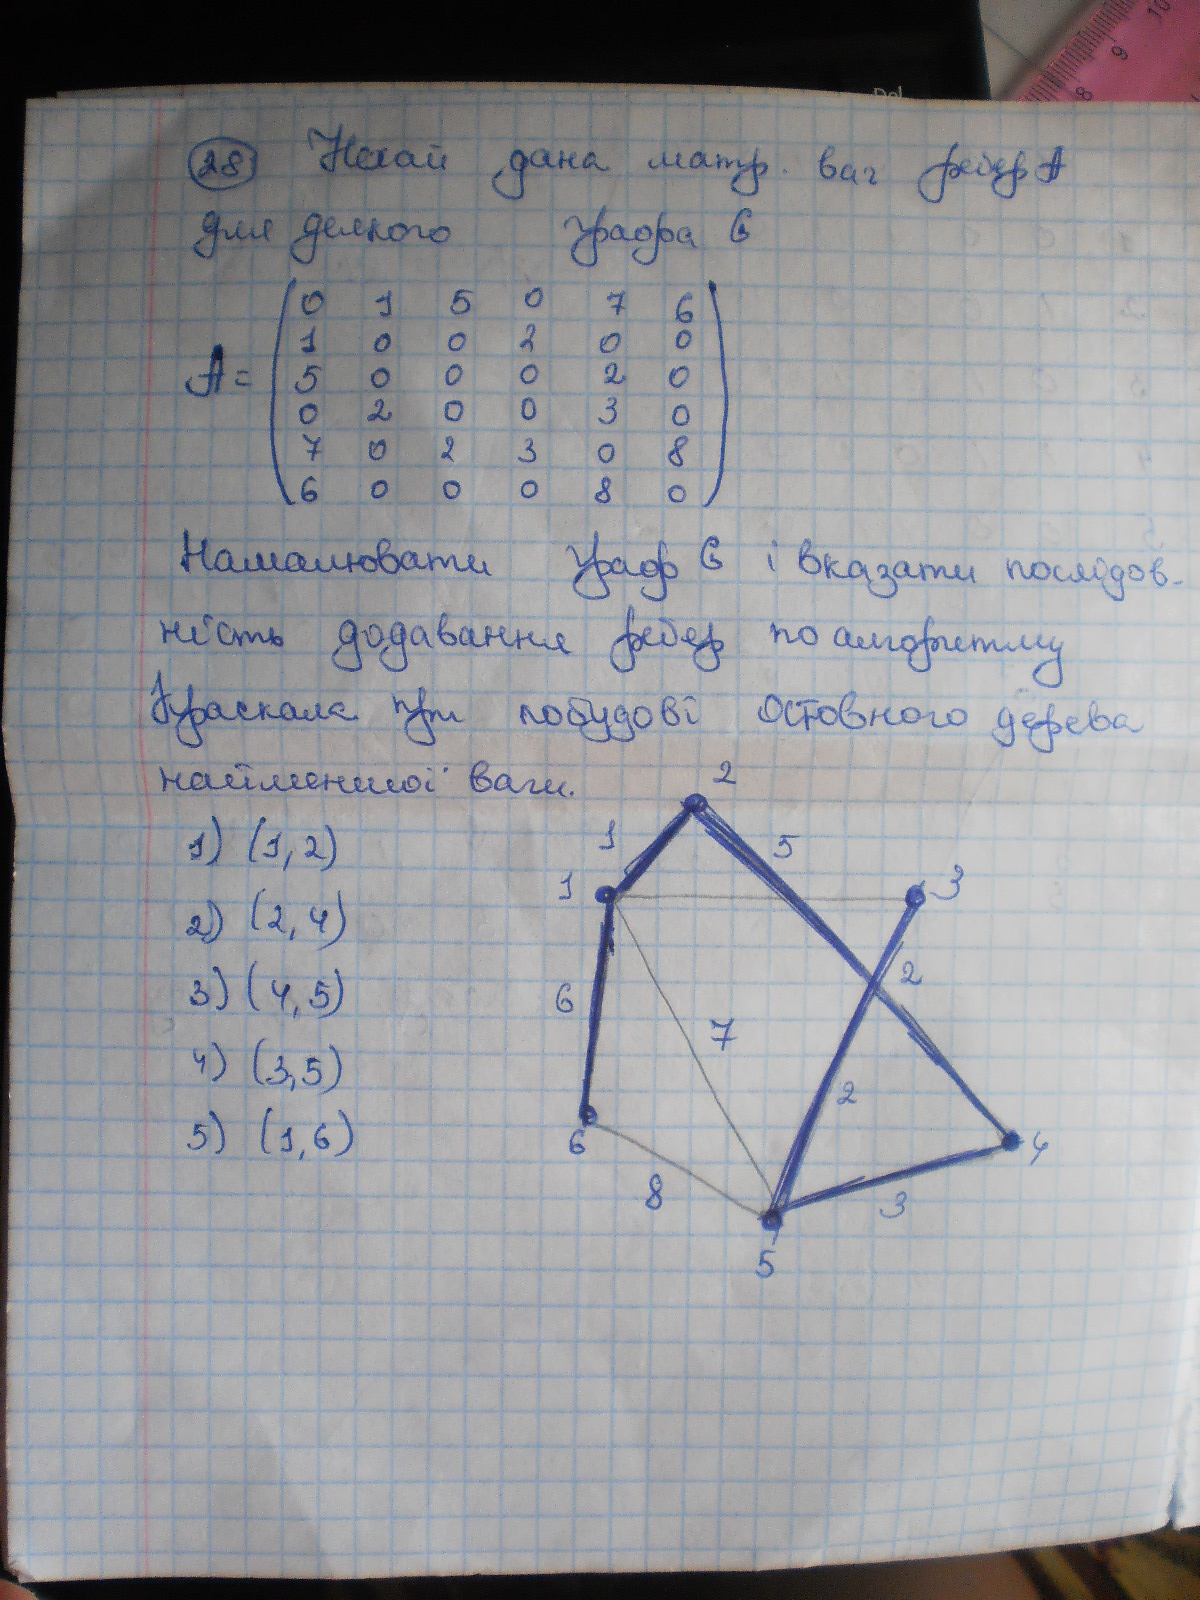 28 Нехай дана матр. ваг ребер A
для деякого графа G
0 1 5 0 7 6
1 0 0 2 0 0
A = 5 0 0 0 2 0
0 2 0 0 3 0
7 0 2 3 0 8
6 0 0 0 8 0
Намалювати граф G і вказати послідов-
ність додавання ребер по алгоритму
Краскала при побудові остовного дерева
найменшої ваги.
1) (1,2)
2) (2,4)
3) (4,5)
4) (3,5)
5) (1,6)
2
1
5
1
3
2
6
7
2
6
4
8
3
5
8
9
10
Del